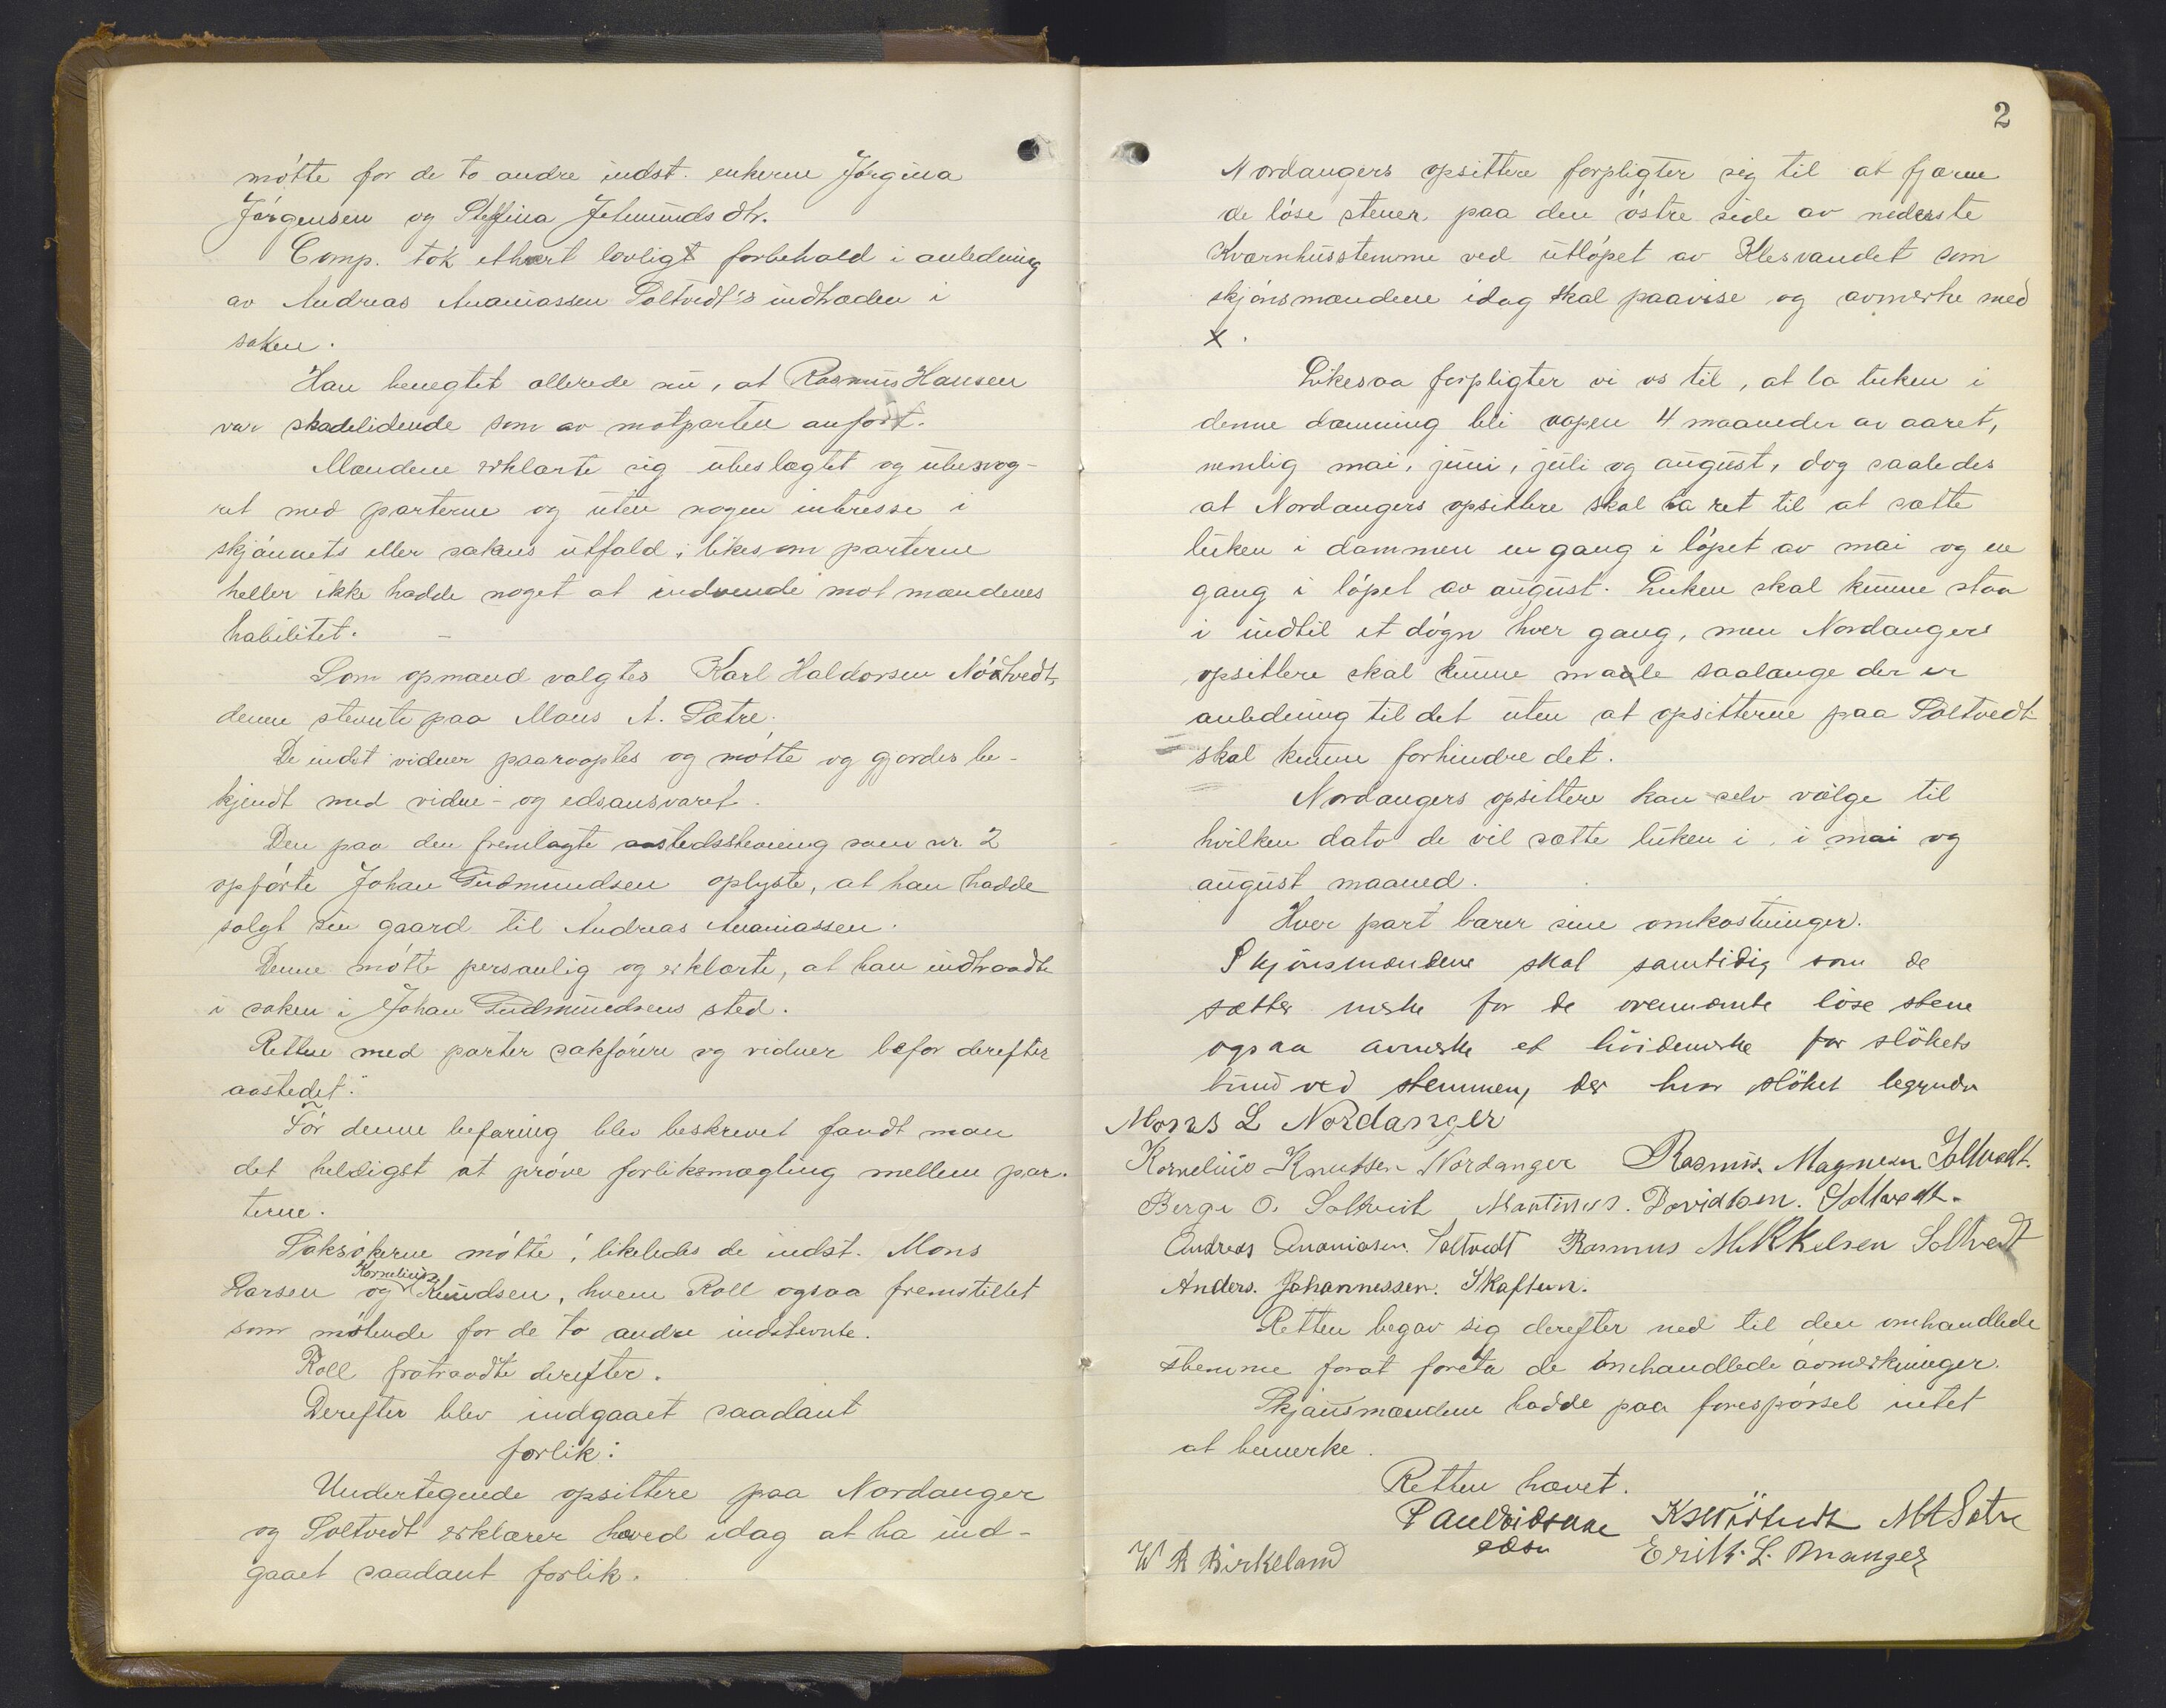 møtte for de to andre indst. enkerne Jørgina
Jørgensen og Steffina Jetmundsdtr.
Comp. tok ethvert lovligt forbehold i anledning
av Andreas Ananiassen Soltvedt's indtræden i
saken.
Han benegtet allerede nu, at Rasmus Hansen
var skadelidende som av motparten anført.
Mændene erklærte sig ubeslægtet og ubesvog-
ret med parterne og uten nogen interesse i
skjønnets eller sakens utfald, likesom parterne
heller ikke hadde noget at indvende mot mændenes
habilitet. -
Som opmand valgtes Karl Haldorsen Nødtvedt,
denne stemte paa Mons A. Sætre.
De indst vidner paaroptes og møtte og gjordes be-
kjendt med vidne- og edsansvaret.
Den paa den fremlagte aastedsstevning som nr. 2
opførte Johan Gudmundsen oplyste, at han hadde
solgt sin gaard til Andreas Ananiassen.
Denne møtte personlig og erklærte, at han indtraadte
i saken i Johan Gudmundsens sted.
Retten med parter sakførere og vidner befor derefter
aastedet.
Før denne befaring blev beskrevet fandt man
det heldigst at prøve forliksmægling mellem par-
terne.
Saksøkerne møtte, likeledes de indst. Mons
Larsen og Kornelius Knudsen, hvem Roll ogsaa fremstillet
som møtende for de to andre indstevnte.
Roll fratraadte derefter.
Derefter blev indgaaet saadant
forlik:
Undertegnede opsittere paa Nordanger
og Soltvedt erklærer herved idag at ha ind-
gaaet saadant forlik.
2
Nordangers opsittere forpligter sig til at fjærne
de løse stener paa den østre side av nederste
Kvernhusstemme ved utløpet av Klesvandet som
skjønsmændene idag skal paavise og avmerke med
x.
Likesaa forpligter vi os til, at la luken i
denne dæmning bli aapen 4 maaneder av aaret,
nemlig mai, juni, juli og august, dog saaledes
at Nordangers opsittere skal ha ret til at sætte
luken i dammen en gang i løpet av mai og en
gang i løpet av august. Luken skal kunne staa
i indtil et døgn hver gang, men Nordangers
opsittere skal kunne male saalænge der er
anledning til det uten at opsitterne paa Soltvedt
skal kunne forhindre det.
Nordangers opsittere kan selv vælge til
hvilken dato de vil sætte luken i, i mai og
august maaned.
Hver part bærer sine omkostninger.
Skjønsmændene skal samtidig som de
sætter merke for de ovennævnte løse stene
ogsaa avmerke et høidemerke for sløkets
bund ved stemmen, der hvor sløket begynder
Mons L Nordanger
Kornelius Knutsen Nordanger Rasmus. Magnesen Soltvedt.
Berge O. Soltveit Martinus. Davidsen. Soltvedt.
Andreas Ananiasen. Soltvedt Rasmus Mikkelsen Soltvedt
Anders. Johannessen. Skaftun.
Retten begav sig derefter ned til den omhandlede
stemme forat foreta de omhandlede avmerkninger.
Skjønsmændene hadde paa forespørsel intet
at bemerke.
Retten hævet.
M A Sætre
W R Birkeland Erik. L. Manger